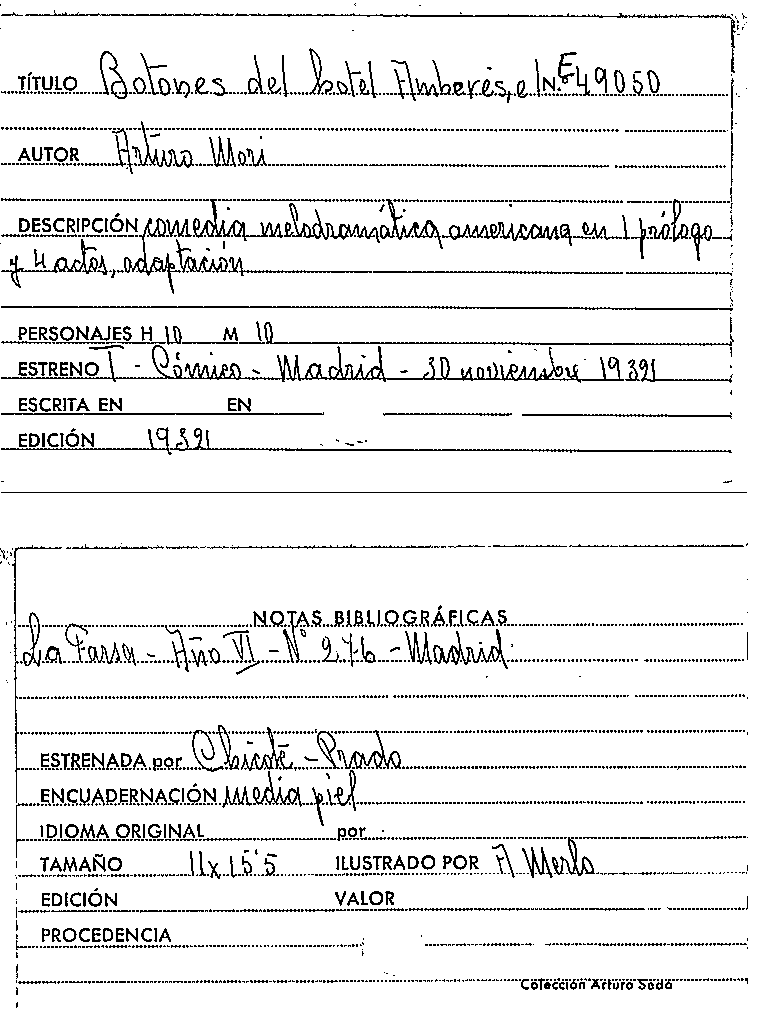 TÍTULO Botones del hotel Amberes, el N.E-49050
AUTOR Arturo Mori
DESCRIPCIÓN comedia melodramática americana en 1 prólogo
y 4 actos, adaptación
PERSONAJES H 10 M 10
ESTRENO T - Cómico - Madrid - 30 noviembre 1932
ESCRITA EN EN
EDICIÓN 1932
NOTAS BIBLIOGRÁFICAS
La Farsa - Año VI - Nº 276 - Madrid
ESTRENADA por Chicote - Prado
ENCUADERNACIÓN media piel
IDIOMA ORIGINAL por
TAMAÑO 11x15'5 ILUSTRADO POR A Merlo
EDICIÓN VALOR
PROCEDENCIA
Colección Arturo Sedó